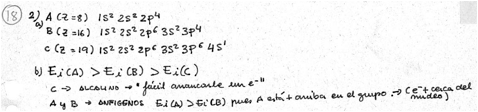 18 2) A (Z=8) 1S² 2S² 2p⁴
B (Z=16) 1S² 2S² 2p⁶ 3S² 3p⁴
C (Z=19) 1S² 2S² 2p⁶ 3S² 3p⁶ 4S¹
b) Ei(A) > Ei(B) > Ei(C)
C → ALCALINO → "fácil arrancarle un e⁻"
A y B → ANFIGENOS Ei(A) > Ei(B) pues A está + arriba en el grupo → (e⁻ + cerca del núcleo)